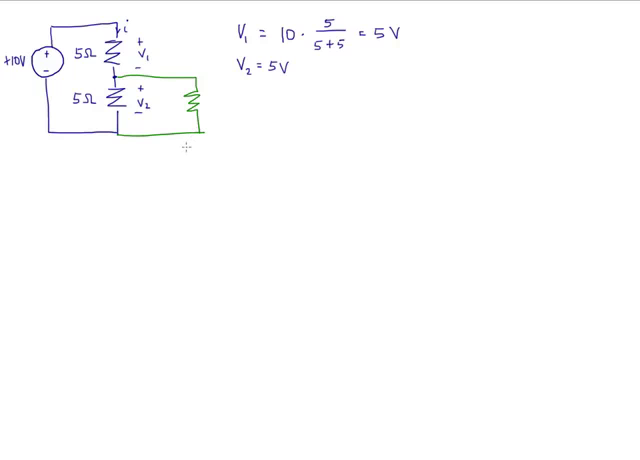 i
+10V
+
-
5Ω
+
V₁
-
5Ω
+
V₂
-
V₁ = 10 · 5/(5+5) = 5 V
V₂ = 5V